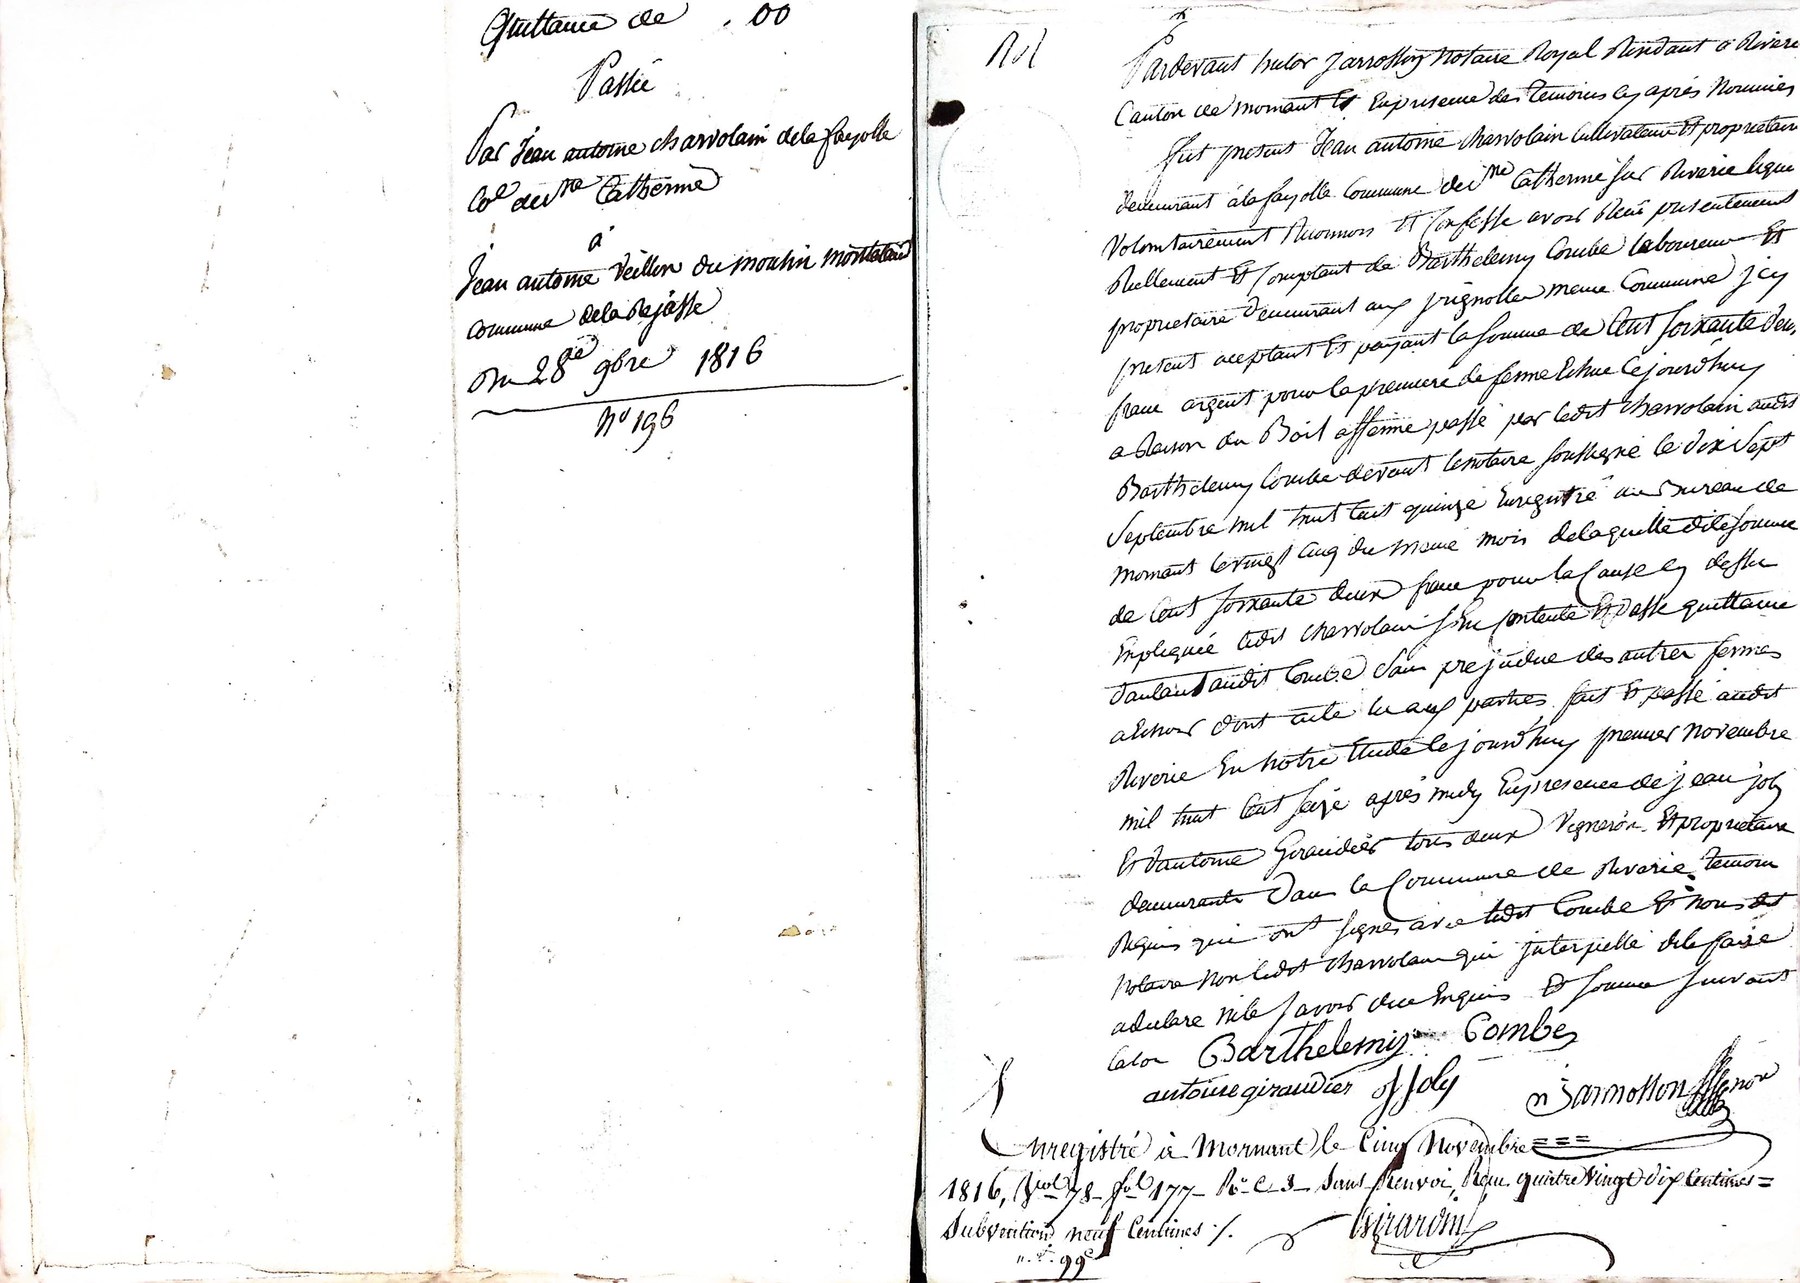 Quittance de . 00
Passée
Par Jean antoine charvolain dela fayolle
Co.e de Ste Catherine
a
Jean antoine Veillon du moulin
commune dela Rejasse
Du 28e 9bre 1816
No 196
Pardevant hector Jarrosson Notaire Royal Residant a Riverie
Canton de mornant Et En presence des temoins cy après Nommés
fut present Jean antoine charvolain Cultivateur Et proprietaire
demeurant a la fayolle Commune de Ste Catherine sur Riverie lequel
Volontairement Reconnois Et Confesse avoir Recu presentement
Reellement Et Comptant de Barthelemy Combe laboureur Et
proprietaire demeurant aux jrignolles meme Commune jcy
present aceptant Et payant la somme de Cent soixante deux
franc argent pour la premiere de ferme Echue Cejourd'huy
a Raison du Bail afferme passé par ledit charvolain audit
Barthelemy Combe devant le notaire soussigné le dix sept
Septembre mil huit Cent quinze Enregistré au Bureau de
mornant le vingt Cinq du meme mois delaquelle dite somme
de Cent soixante deux franc pour la Cause cy dessu
Expliquée ledit charvolain s'En Contente Et passe quittance
d'autant audit Combe sans prejudice des autres fermes
a Echoir dont acte lu aux parties fait Et passé audit
Riverie En notre Etude le jourd'huy premier Novembre
mil huit Cent seize après midy En presence de jean joly
Et d'antoine Giraudier tous deux Vigneron Et proprietaire
demeurants dans la Commune de Riverie temoin
Requis qui ont signés avec ledit Combe Et nous dit
Notaire non ledit charvolain qui jnterpellé dele faire
a declare ne le savoir due Enquis Et somme suivant
la loi Barthelemy Combe
antoine giraudier Joly Jarrosson nore
Enregistré à Mornant le Cinq Novembre ===
1816, Vol 78 fol 177 Ro C 3 Sans Renvoi, Recu quatre Vingt dix Centimes =
Subvention neuf Centimes ./. Girardin
99c